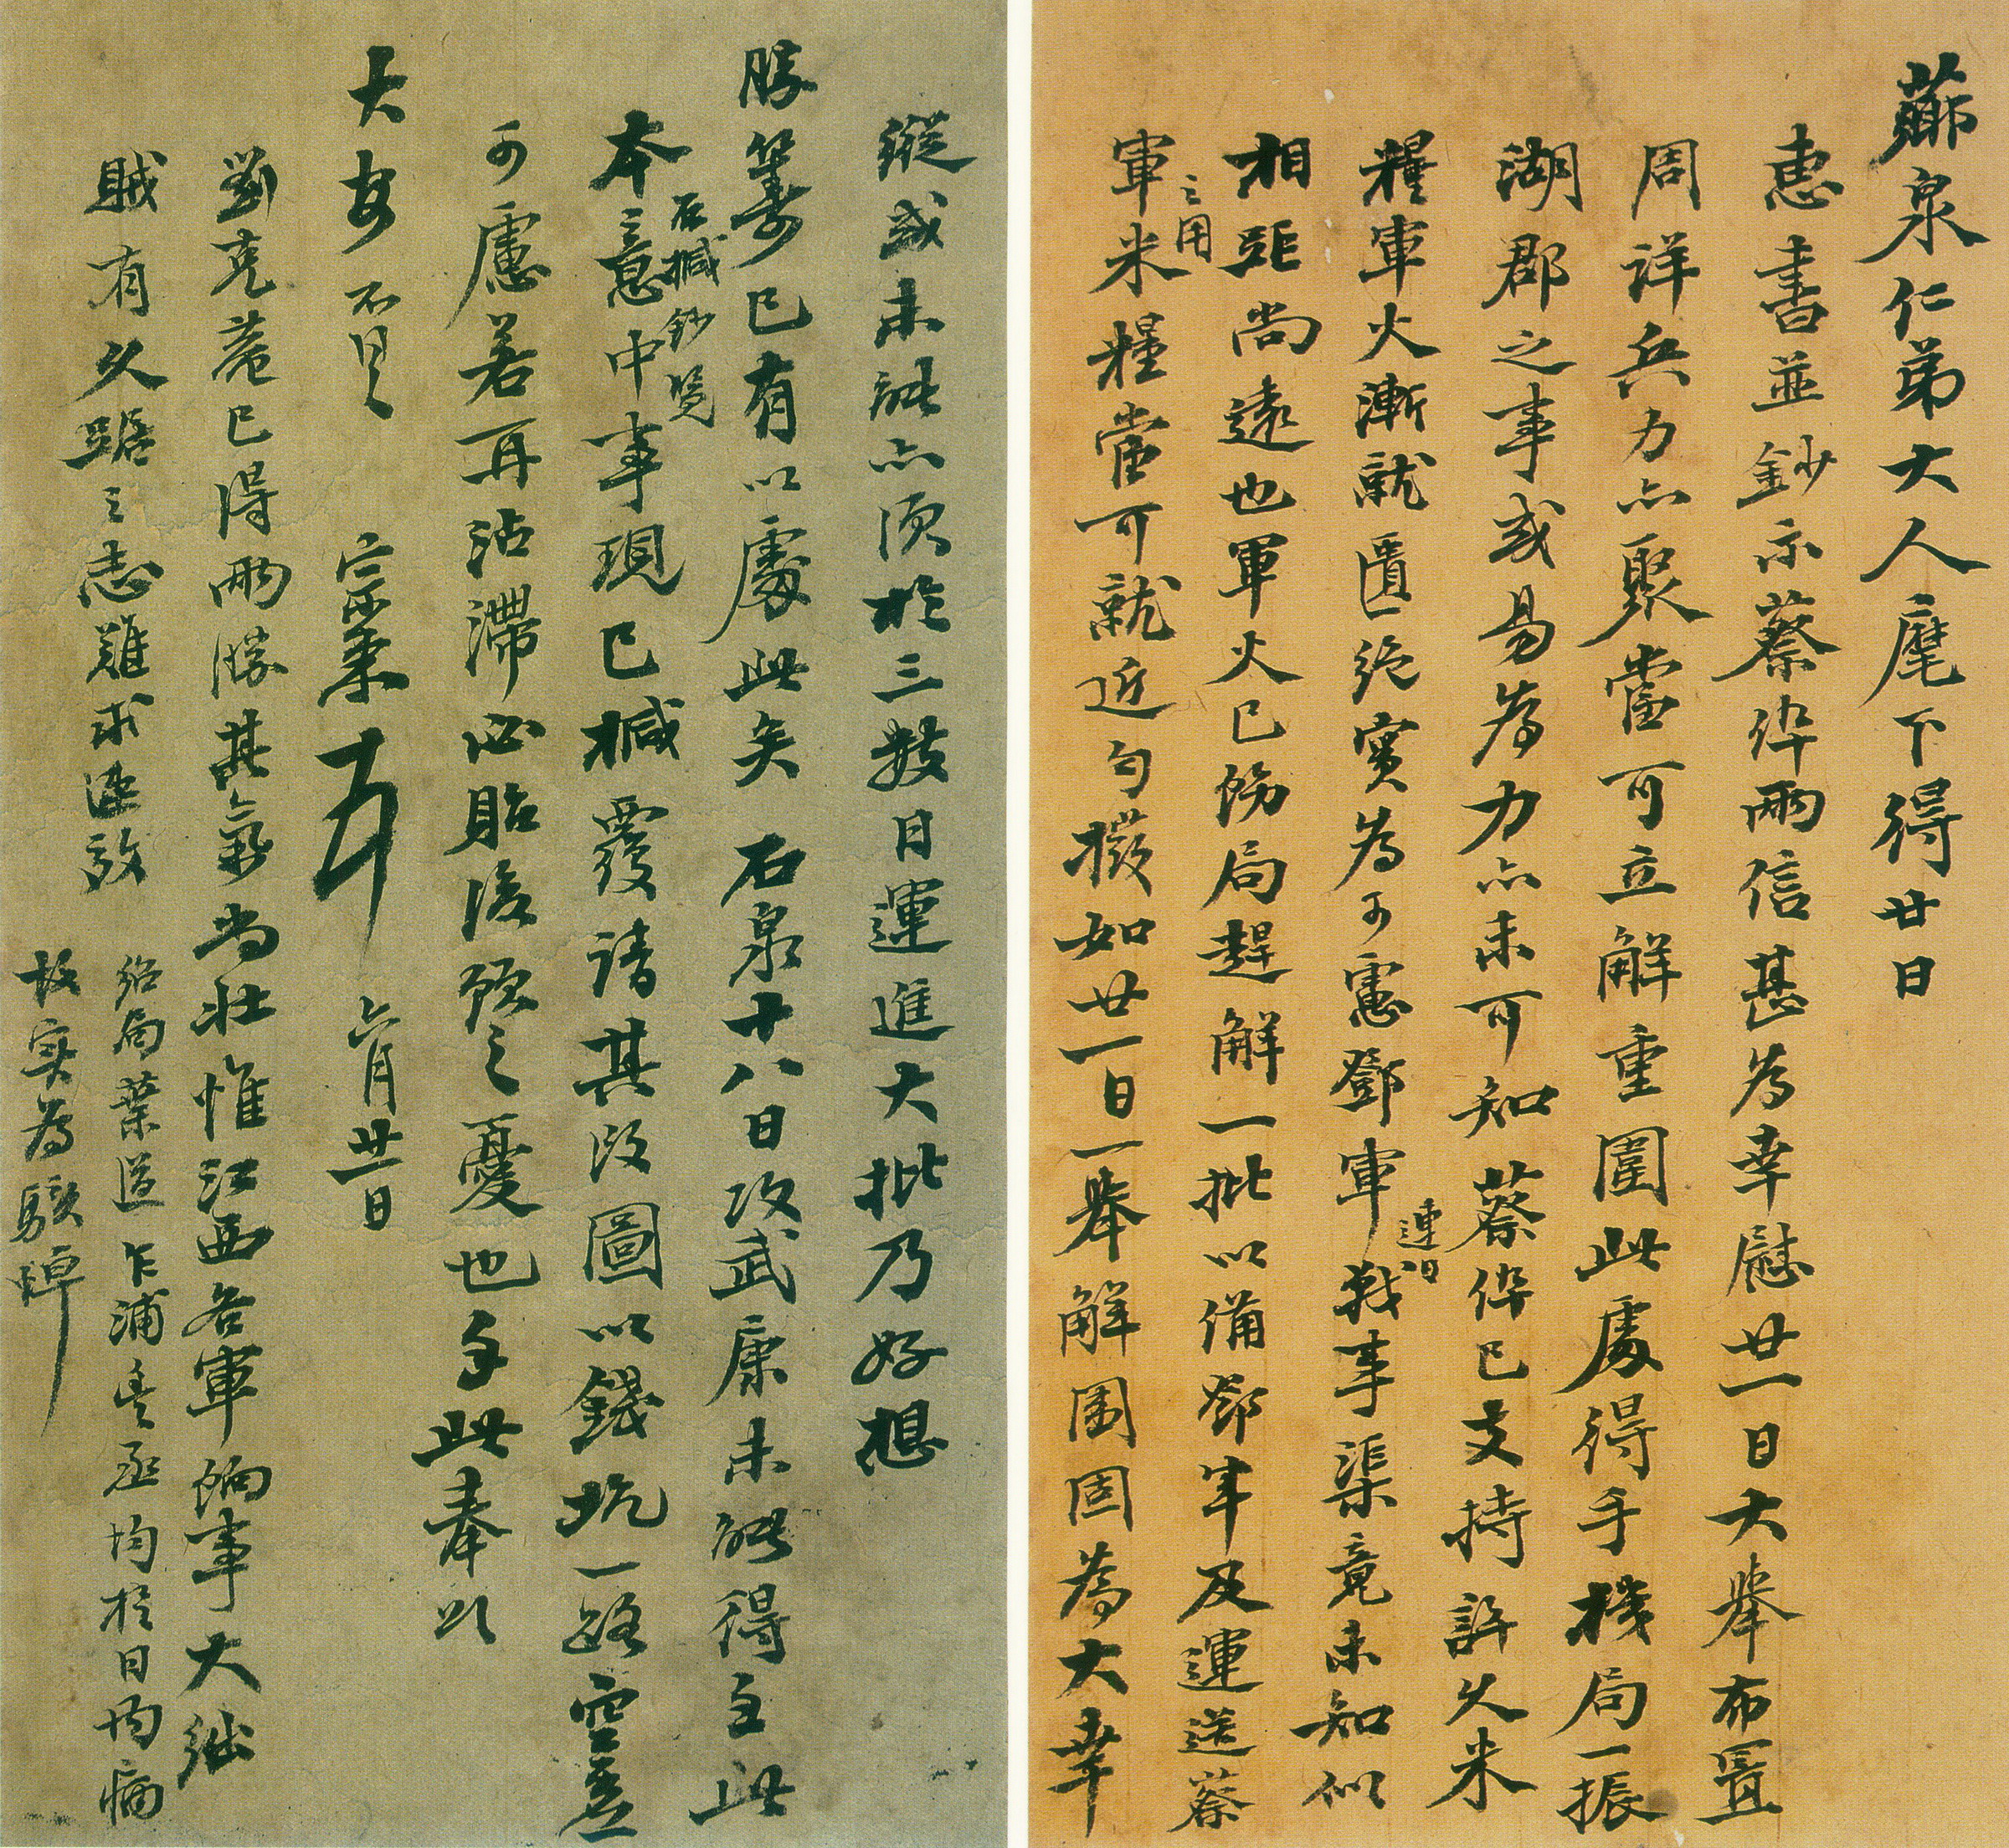 薌泉仁弟大人麾下得廿日
惠書並鈔示蔡倅兩信甚為幸慰廿一日大舉布置
周詳兵力亦聚當可立解重圍此處得手機局一振
湖郡之事或易為力亦未可知蔡倅已支持許久米
糧軍火漸就匱絕實為可慮鄧軍連日戰事渠竟未知似
相距尚遠也軍火已飭局趕解一批以備鄧軍及運送蔡
軍之用米糧當可就近勻撥如廿一日一舉解圍固為大幸
縱或未能亦須於三數日運進大批乃好想
勝算已有以處此矣石泉十八日攻武康未能得手此
本意中事現已椷覆請其改圖以錢坑一路空虛
石椷鈔覽
可慮若再沾滯必貽後路之憂也手此奉以
大安不具 宗棠 六月廿一日
劉克菴已得兩勝其氣尚壯惟江西各軍餉事大絀
賊有久踞之志難求速效
紹局葉道乍浦吳丞均於日內病
故實為駭悼